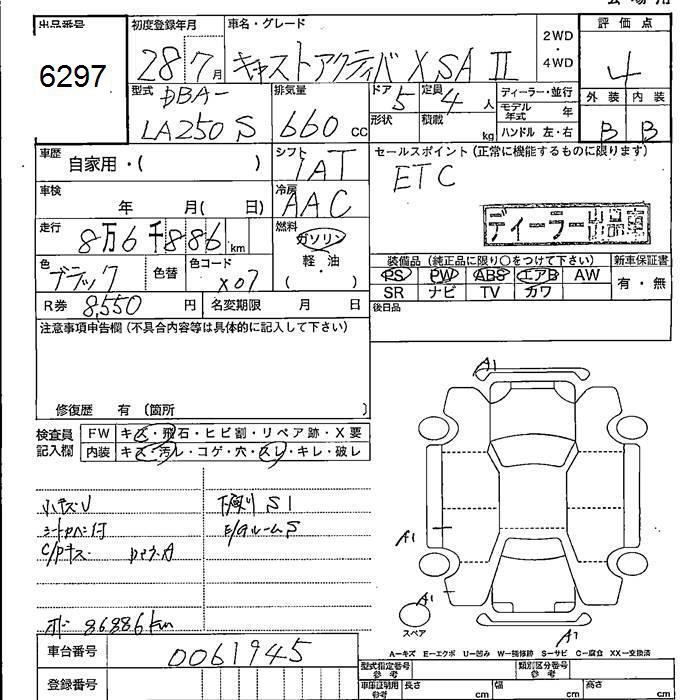 出品番号
6297
初度登録年月
28 7月
車名・グレード
キャストアクティバ X SA II
2WD
・
4WD
評 価 点
4
外 装 内 装
B B
型式
DBA-
LA250S
排気量
660 cc
ドア
5
形状
定員
4 人
積載
kg
ディーラー・並行
モデル年式 年
ハンドル 左・右
車歴
自家用・( )
シフト
IAT
セールスポイント(正常に機能するものに限ります)
ETC
ディーラー出品車
車検
年 月( 日)
冷房
AAC
走行
8万6千886km
燃料
ガソリン
軽・油
( )
色
ブラック
色替
色コード
X07
装備品(純正品に限り〇をつけて下さい)
PS PW ABS エアB AW
SR ナビ TV カワ
新車保証書
有・無
R券
8,550 円
名変期限 月 日
後日品
注意事項申告欄(不具合内容等は具体的に記入して下さい)
修復歴 有 〔箇所 〕
検査員
記入欄
FW キズ・飛石・ヒビ割・リペア跡・X要
内装 キズ・汚レ・コゲ・穴・スレ・キレ・破レ
小キズU
下廻り S1
シートカバー付
E/gルームS
C/Pキズ
86886km
車台番号
0061945
登録番号
A1
A1
A1
A1
スペア
A-キズ E-エクボ U-凹み W-補修跡 S-サビ C-腐食 XX-交換済
型式指定番号
参 考
類別区分番号
参 考
車庫証明用
参 考
長さ cm
幅 cm
高さ cm